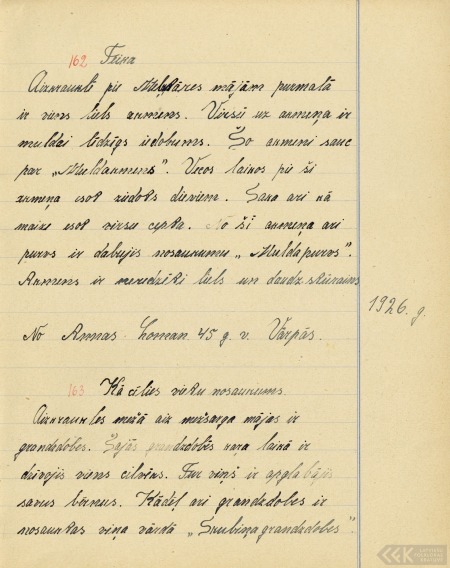 162 Teika
Aizkraukle pie Muldāres mājām purmalā
ir viens liels akmens. Virsū uz akmeņa ir
muldai līdzīgs iedobums. Šo akmeni sauc
par „Muldakmens". Vecos laikos pie šī
akmeņa esot ziedots dieviem. Saka arī kā
maize esot virsū cepta. No šī akmeņa arī
purvs ir dabūjis nosaukumu „Muldapurvs".
Akmens ir neredzēti liels un daudz skūrains
1926. g.
No Annas Loman 45 g. v. Vārpās.
163 Kā cēlies vietu nosaukums
Aizkraukles mežā aiz mežsarga mājas ir
grandzdobes. Šajās grandzdobēs kara laikā ir
dzīvojis viens cilvēks. Tur viņš ir apglabājis
savus bērnus. Kādēļ arī grandzdobes ir
nosauktas viņa vārdā „Skubiņa grandzdobes".